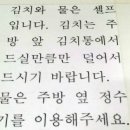 김치와 물은 셀프
입니다. 김치는 주
방 앞 김치통에서
드실만큼만 덜어서
드시기 바랍니다.
물은 주방 옆 정수
기를 이용해주세요.